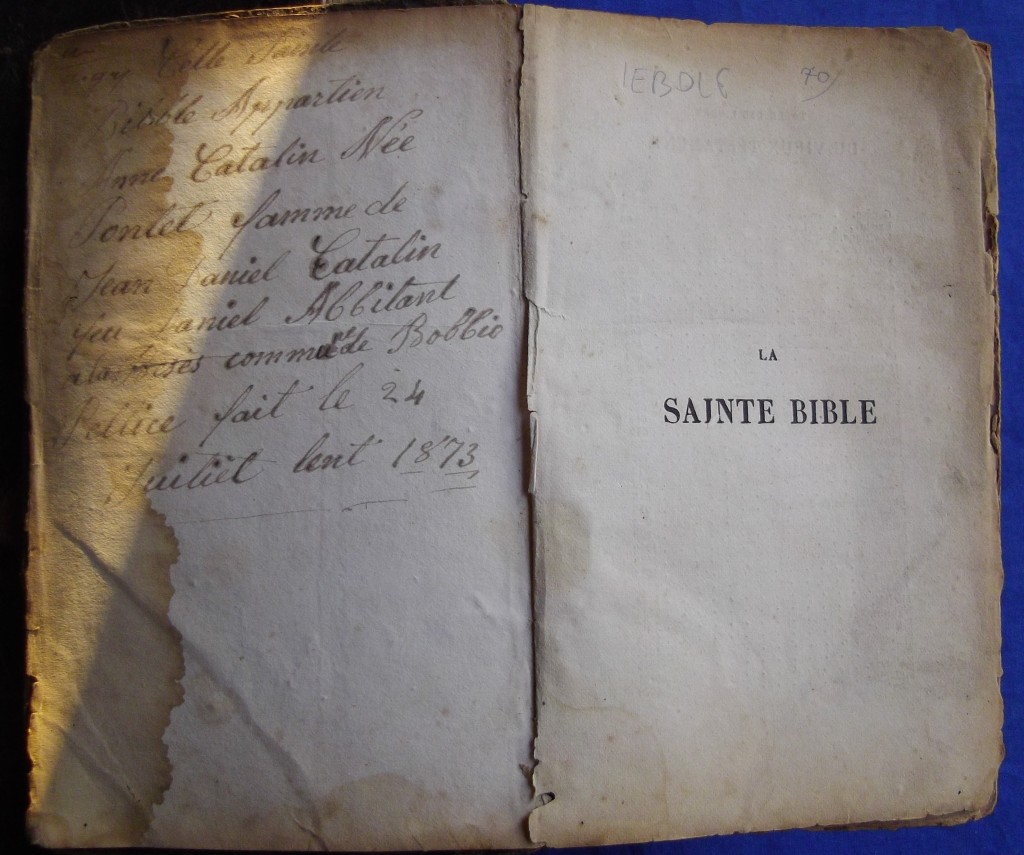 Celle Sainte
Bibble Appartien
Anne Catalin Née
Pontet famme de
Jean Daniel Catalin
feu Daniel Abbitant
commu de Bobbio
Pellice fait le 24
Juitiel lent 1873
70
LA
SAINTE BIBLE